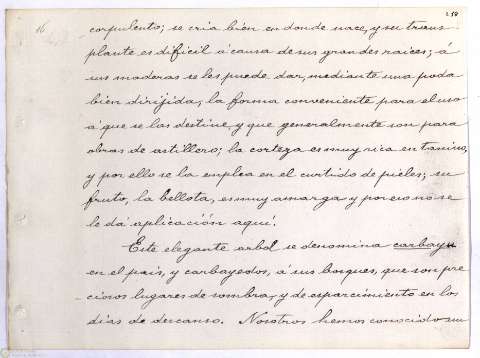 16
250
corpulento; se cria bién en donde nace, y su trans-
plante es dificil á causa de sus grandes raices; á
sus maderas se les puede dar, mediante una poda
bien dirijida, la forma conveniente para el uso
á que se las destine, y que generalmente son para
obras de astillero; la corteza es muy rica en tanino,
y por ello se la emplea en el curtido de pieles; su
fruto, la bellota, es muy amarga y por eso no se
le dá aplicación aquí.
Este elegante arbol se denomina carbayu
en el país, y carbayedos, á sus bosques, que son pre-
ciosos lugares de sombra, y de esparcimiento en los
dias de descanso. Nosotros hemos conocido en